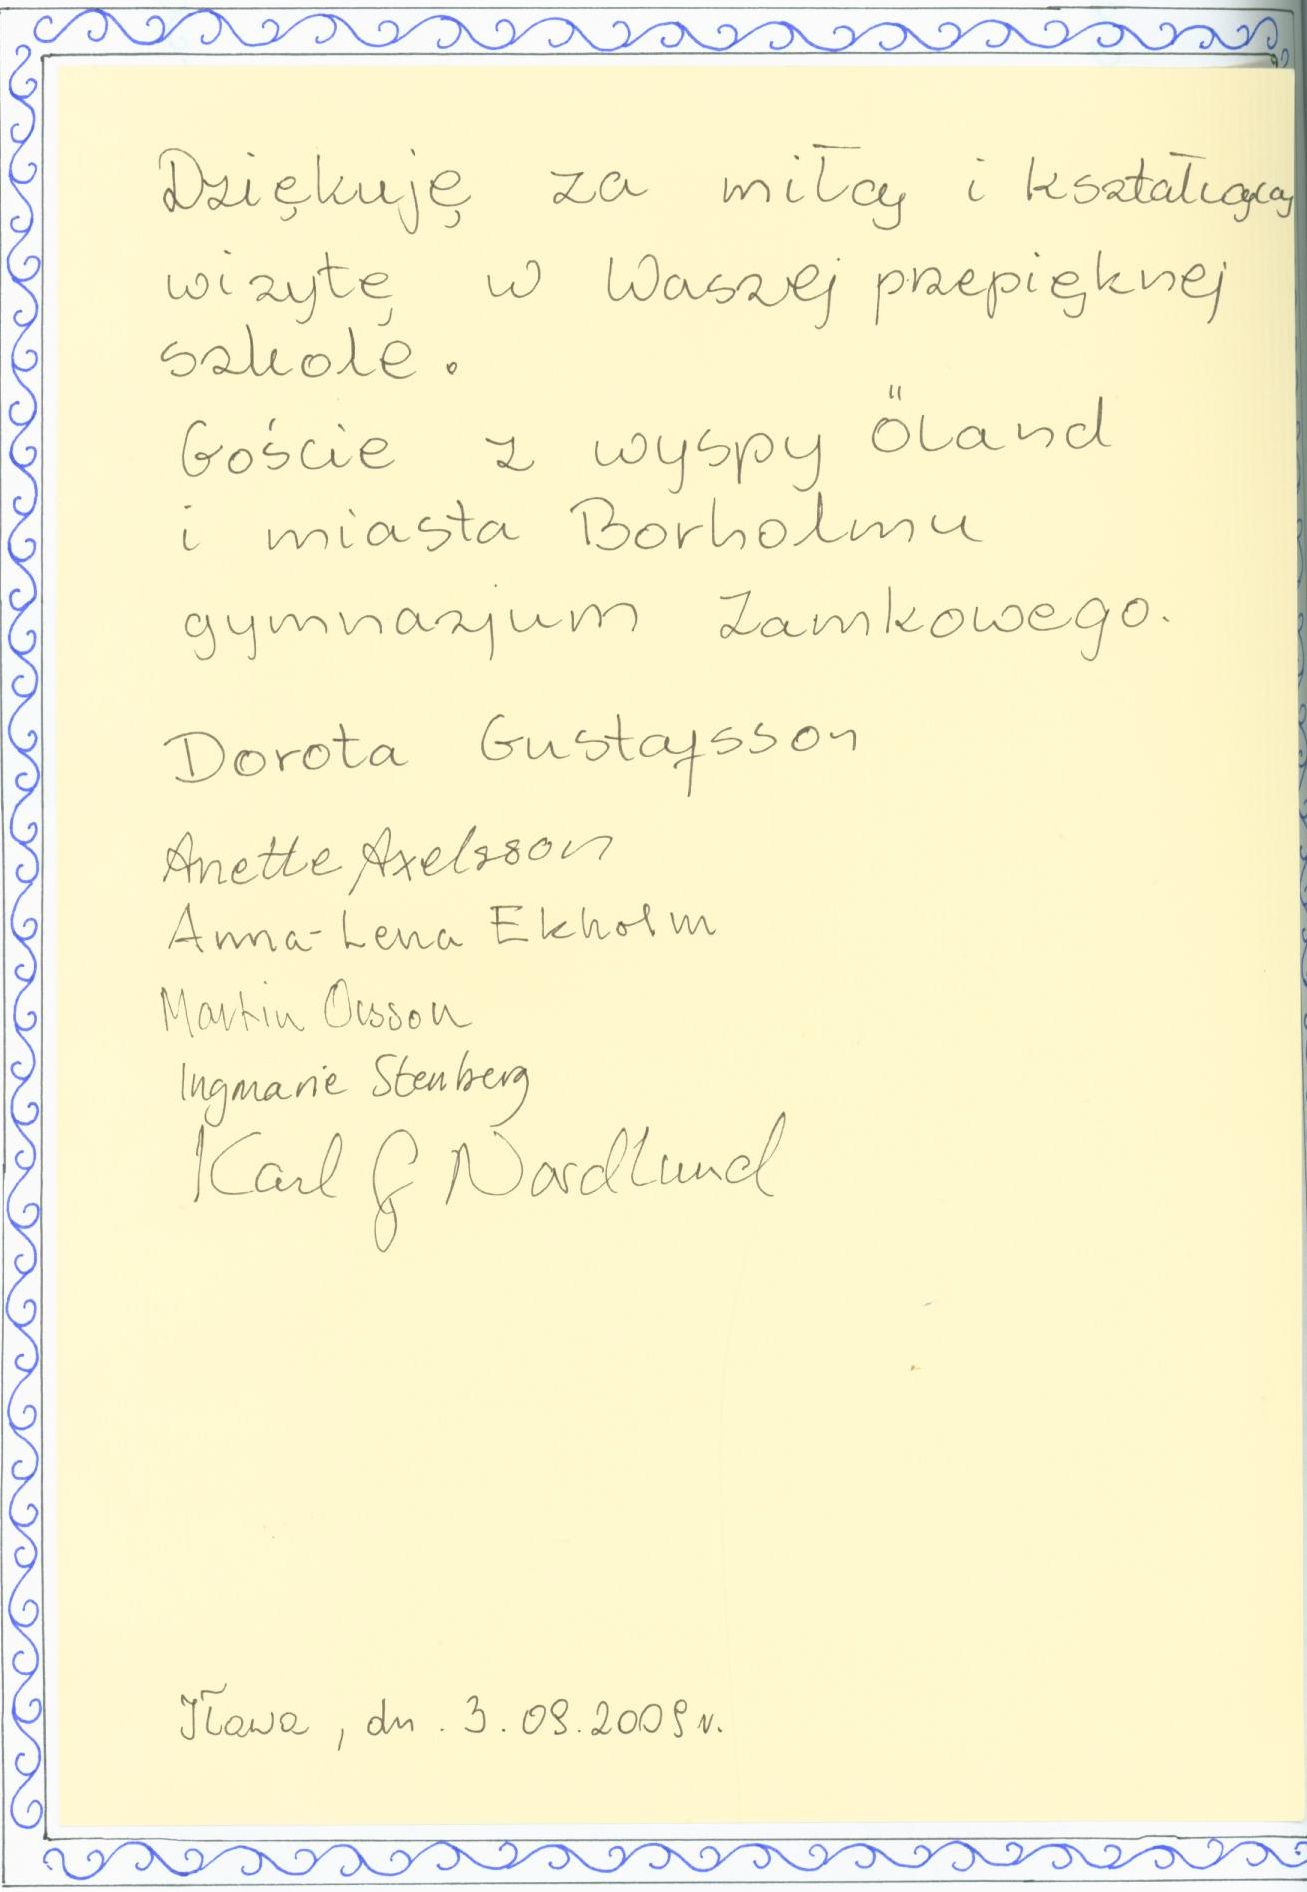 Dziękuję za miłą i kształcącą
wizytę w Waszej przepięknej
szkole.
Goście z wyspy Öland
i miasta Borholmu
gymnazjum Zamkowego.
Dorota Gustafsson
Anette Axelsson
Anna-Lena Ekholm
Martin Olsson
Ingmarie Stenberg
Karl G Nordlund
Iława, dn. 3.09.2009 r.